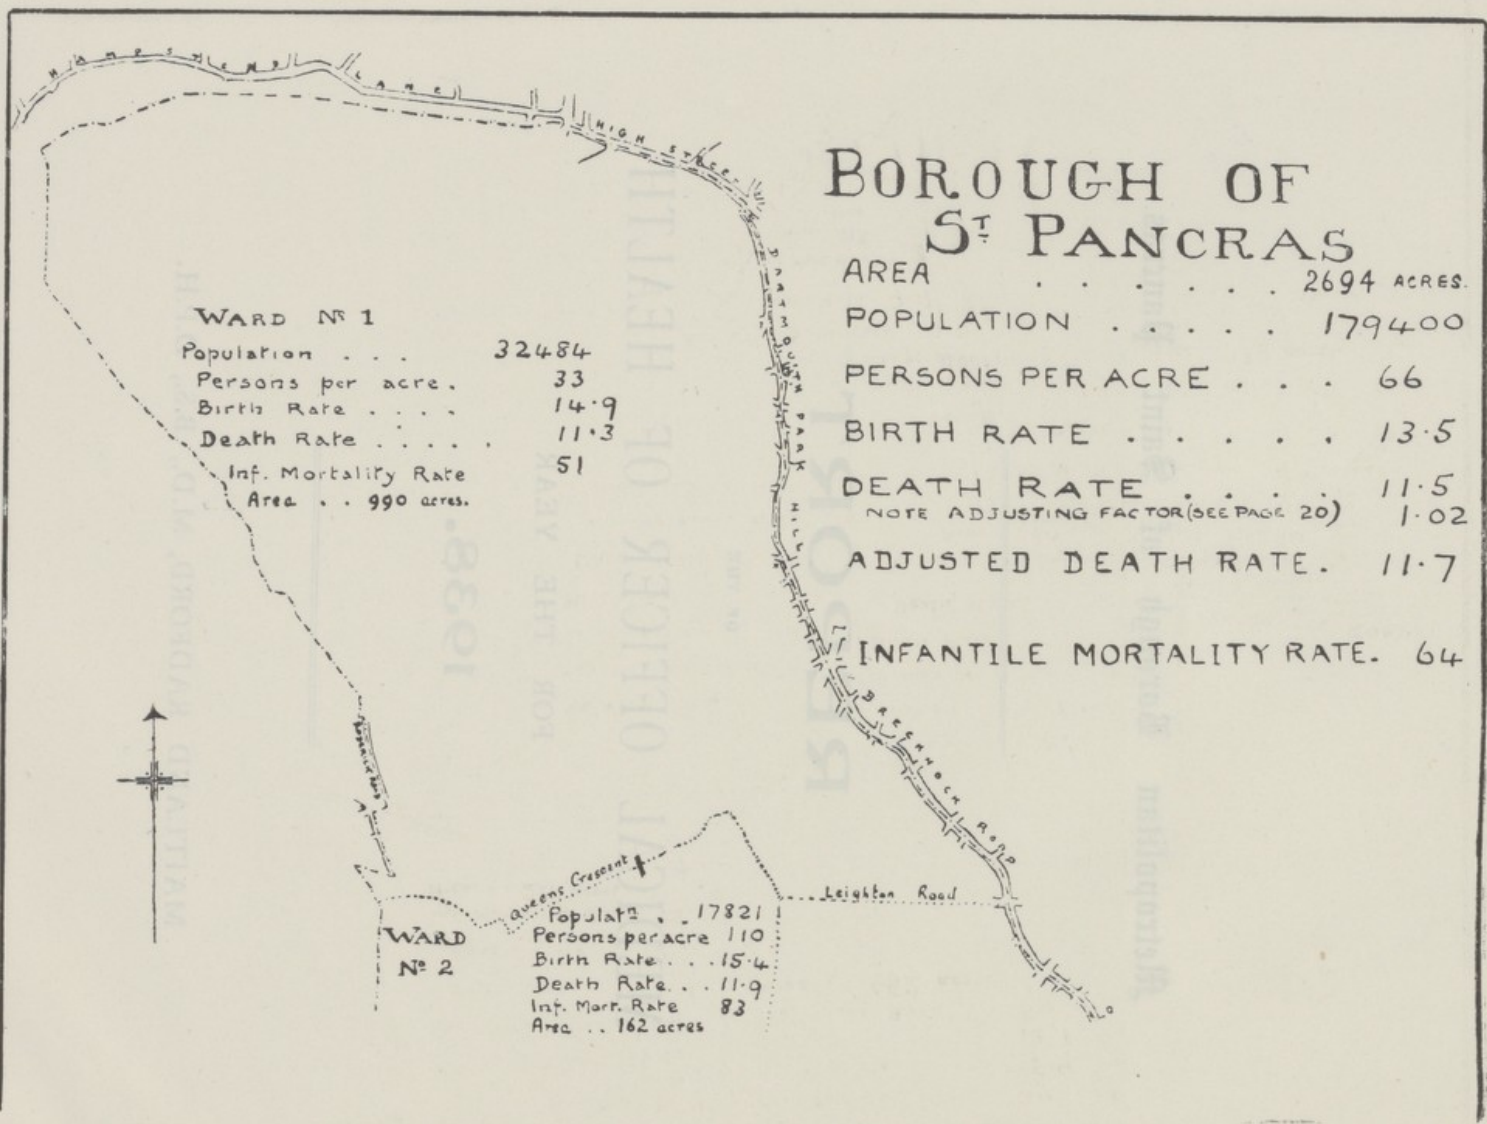 HAMPSTEAD LANE
HIGH STREET
BOROUGH OF
ST. PANCRAS
AREA . . . . . . 2694 ACRES.
POPULATION . . . . . 179400
PERSONS PER ACRE . . . 66
BIRTH RATE . . . . . 13·5
DEATH RATE . . . . 11·5
NOTE ADJUSTING FACTOR (SEE PAGE 20) 1·02
ADJUSTED DEATH RATE. 11·7
INFANTILE MORTALITY RATE. 64
DARTMOUTH PARK HILL
WARD No 1
Population . . . 32484
Persons per acre. 33
Birth Rate . . . . 14·9
Death Rate . . . . . 11·3
Inf. Mortality Rate 51
Area . . 990 acres.
BRECKNOCK ROAD
Queens Crescent
Leighton Road
WARD
No 2
Populatn . . 17821
Persons per acre 110
Birth Rate . . . 15·4
Death Rate . . . 11·9
Inf. Mort. Rate 83
Area . . 162 acres